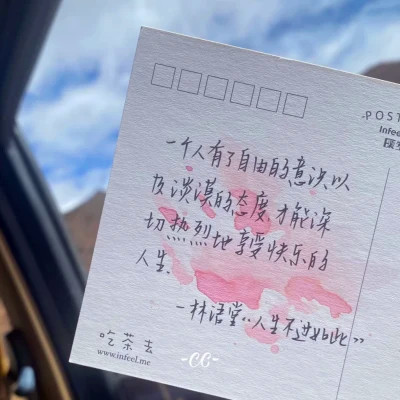 POST
Infeel
一个人有了自由的意识以
及淡漠的态度,才能深
切热烈地享受快乐的
人生.
一林语堂《人生不过如此》
吃茶去
www.infeel.me
-CC-